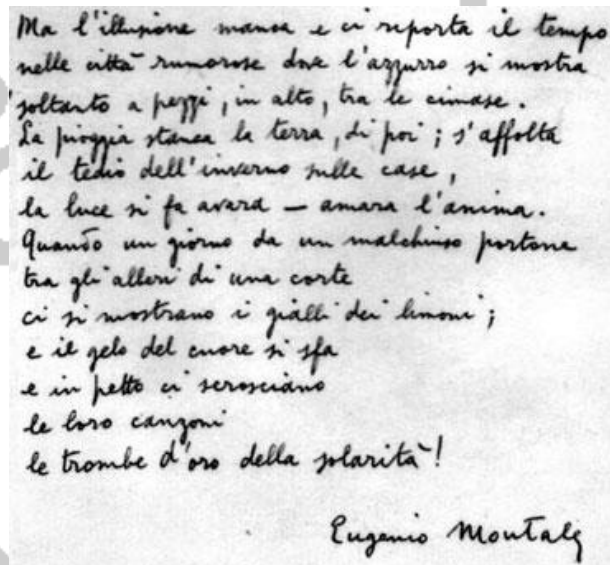 Ma l'illusione manca e ci riporta il tempo
nelle città rumorose dove l'azzurro si mostra
soltanto a pezzi, in alto, tra le cimase.
La pioggia stanca la terra, di poi; s'affolta
il tedio dell'inverno sulle case,
la luce si fa avara – amara l'anima.
Quando un giorno da un malchiuso portone
tra gli alberi di una corte
ci si mostrano i gialli dei limoni;
e il gelo del cuore si sfa
e in petto ci scrosciano
le loro canzoni
le trombe d'oro della solarità!
Eugenio Montale